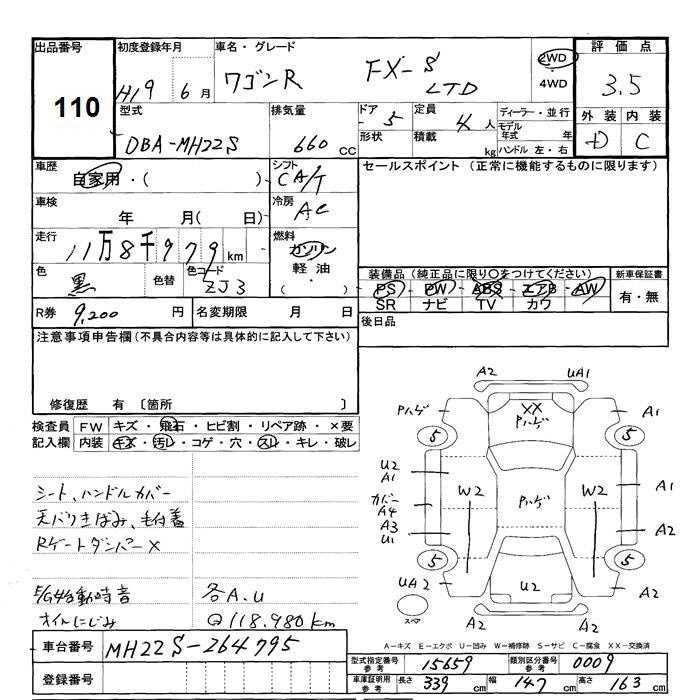 出品番号 110
初度登録年月 H19年 6月
車名・グレード ワゴンR FX-S LTD
2WD
4WD
評価点 3.5
外装 D 内装 C
型式 DBA-MH22S
排気量 660 cc
ドア 5
形状
定員 4 人
積載 kg
ディーラー・並行
モデル年式 年
ハンドル 左・右
車歴 自家用・( )
シフト CA/T
セールスポイント (正常に機能するものに限ります)
車検 年 月( 日)
冷房 AC
走行 11万8千979km
燃料 ガソリン
軽油
( )
色 黒
色替
色コード ZJ3
装備品 (純正品に限り○をつけてください)
PS・PW・ABS・エアB・AW
SR ナビ TV カワ
新車保証書
有・無
R券 9,200 円
名変期限 月 日
後日品
注意事項申告欄 (不具合内容等は具体的に記入して下さい)
修復歴 有 〔箇所 〕
検査員記入欄
FW キズ・飛石・ヒビ割・リペア跡・×要
内装 キズ・汚レ・コゲ・穴・スレ・キレ・破レ
シート、ハンドルカバー
天バリきばみ、毛付着
Rゲートダンパー×
E/G始動時音
オイルにじみ
各A.U
Q118.980km
A2 UA1
Pハゲ XX Pハゲ A1
5 5
U2
A1 A1
カバー
A4 W2 Pハゲ W2
A3
U1 A2
5 5
UA2 U2 A2
スペア
A2 A2
A-キズ E-エクボ U-凹み W-補修跡 S-サビ C-腐食 XX-交換済
車台番号 MH22S-264795
登録番号
型式指定番号 参考 15659
類別区分番号 参考 0009
車庫証明用 参考 長さ 339 cm 幅 147 cm 高さ 163 cm